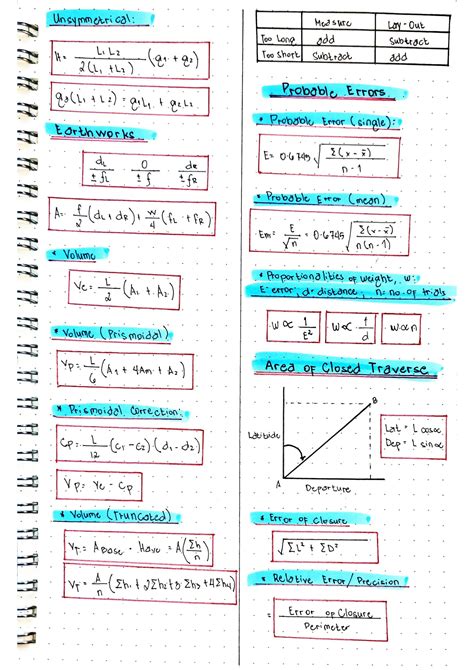 Unsymmetrical:
H = L₁L₂ / 2(L₁+L₂) (g₁ + g₂)
g₃(L₁+L₂) = g₁L₁ + g₂L₂
Earthworks
dL / ± fL   0 / ± f   dR / ± fR
A = f/2 (dL + dR) + w/4 (fL + fR)
* Volume
Ve = L/2 (A₁ + A₂)
* Volume (Prismoidal)
Vp = L/6 (A₁ + 4Am + A₂)
* Prismoidal Correction:
Cp = L/12 (c₁ - c₂)(d₁ - d₂)
Vp = Ve - Cp
* Volume (Truncated)
VT = ABase · Have = A(Σh/n)
VT = A/n (Σh₁ + 2Σh₂ + 3Σh₃ + 4Σh₄)
Measure Lay-Out
Too Long add Subtract
Too Short Subtract add
Probable Errors
* Probable Error (single):
E = 0.6745 √ Σ(x - x̄) / n - 1
* Probable Error (mean)
Em = E/√n = 0.6745 √ Σ(x - x̄) / n(n - 1)
* Proportionalities of weight, w:
E = error, d = distance, n = no. of trials
w ∝ 1/E² w ∝ 1/d w ∝ n
Area of Closed Traverse
B
Latitude
Lat = L cos α
Dep = L sin α
A
Departure
* Error of Closure
√ΣL² + ΣD²
* Relative Error/Precision
= Error of Closure / Perimeter